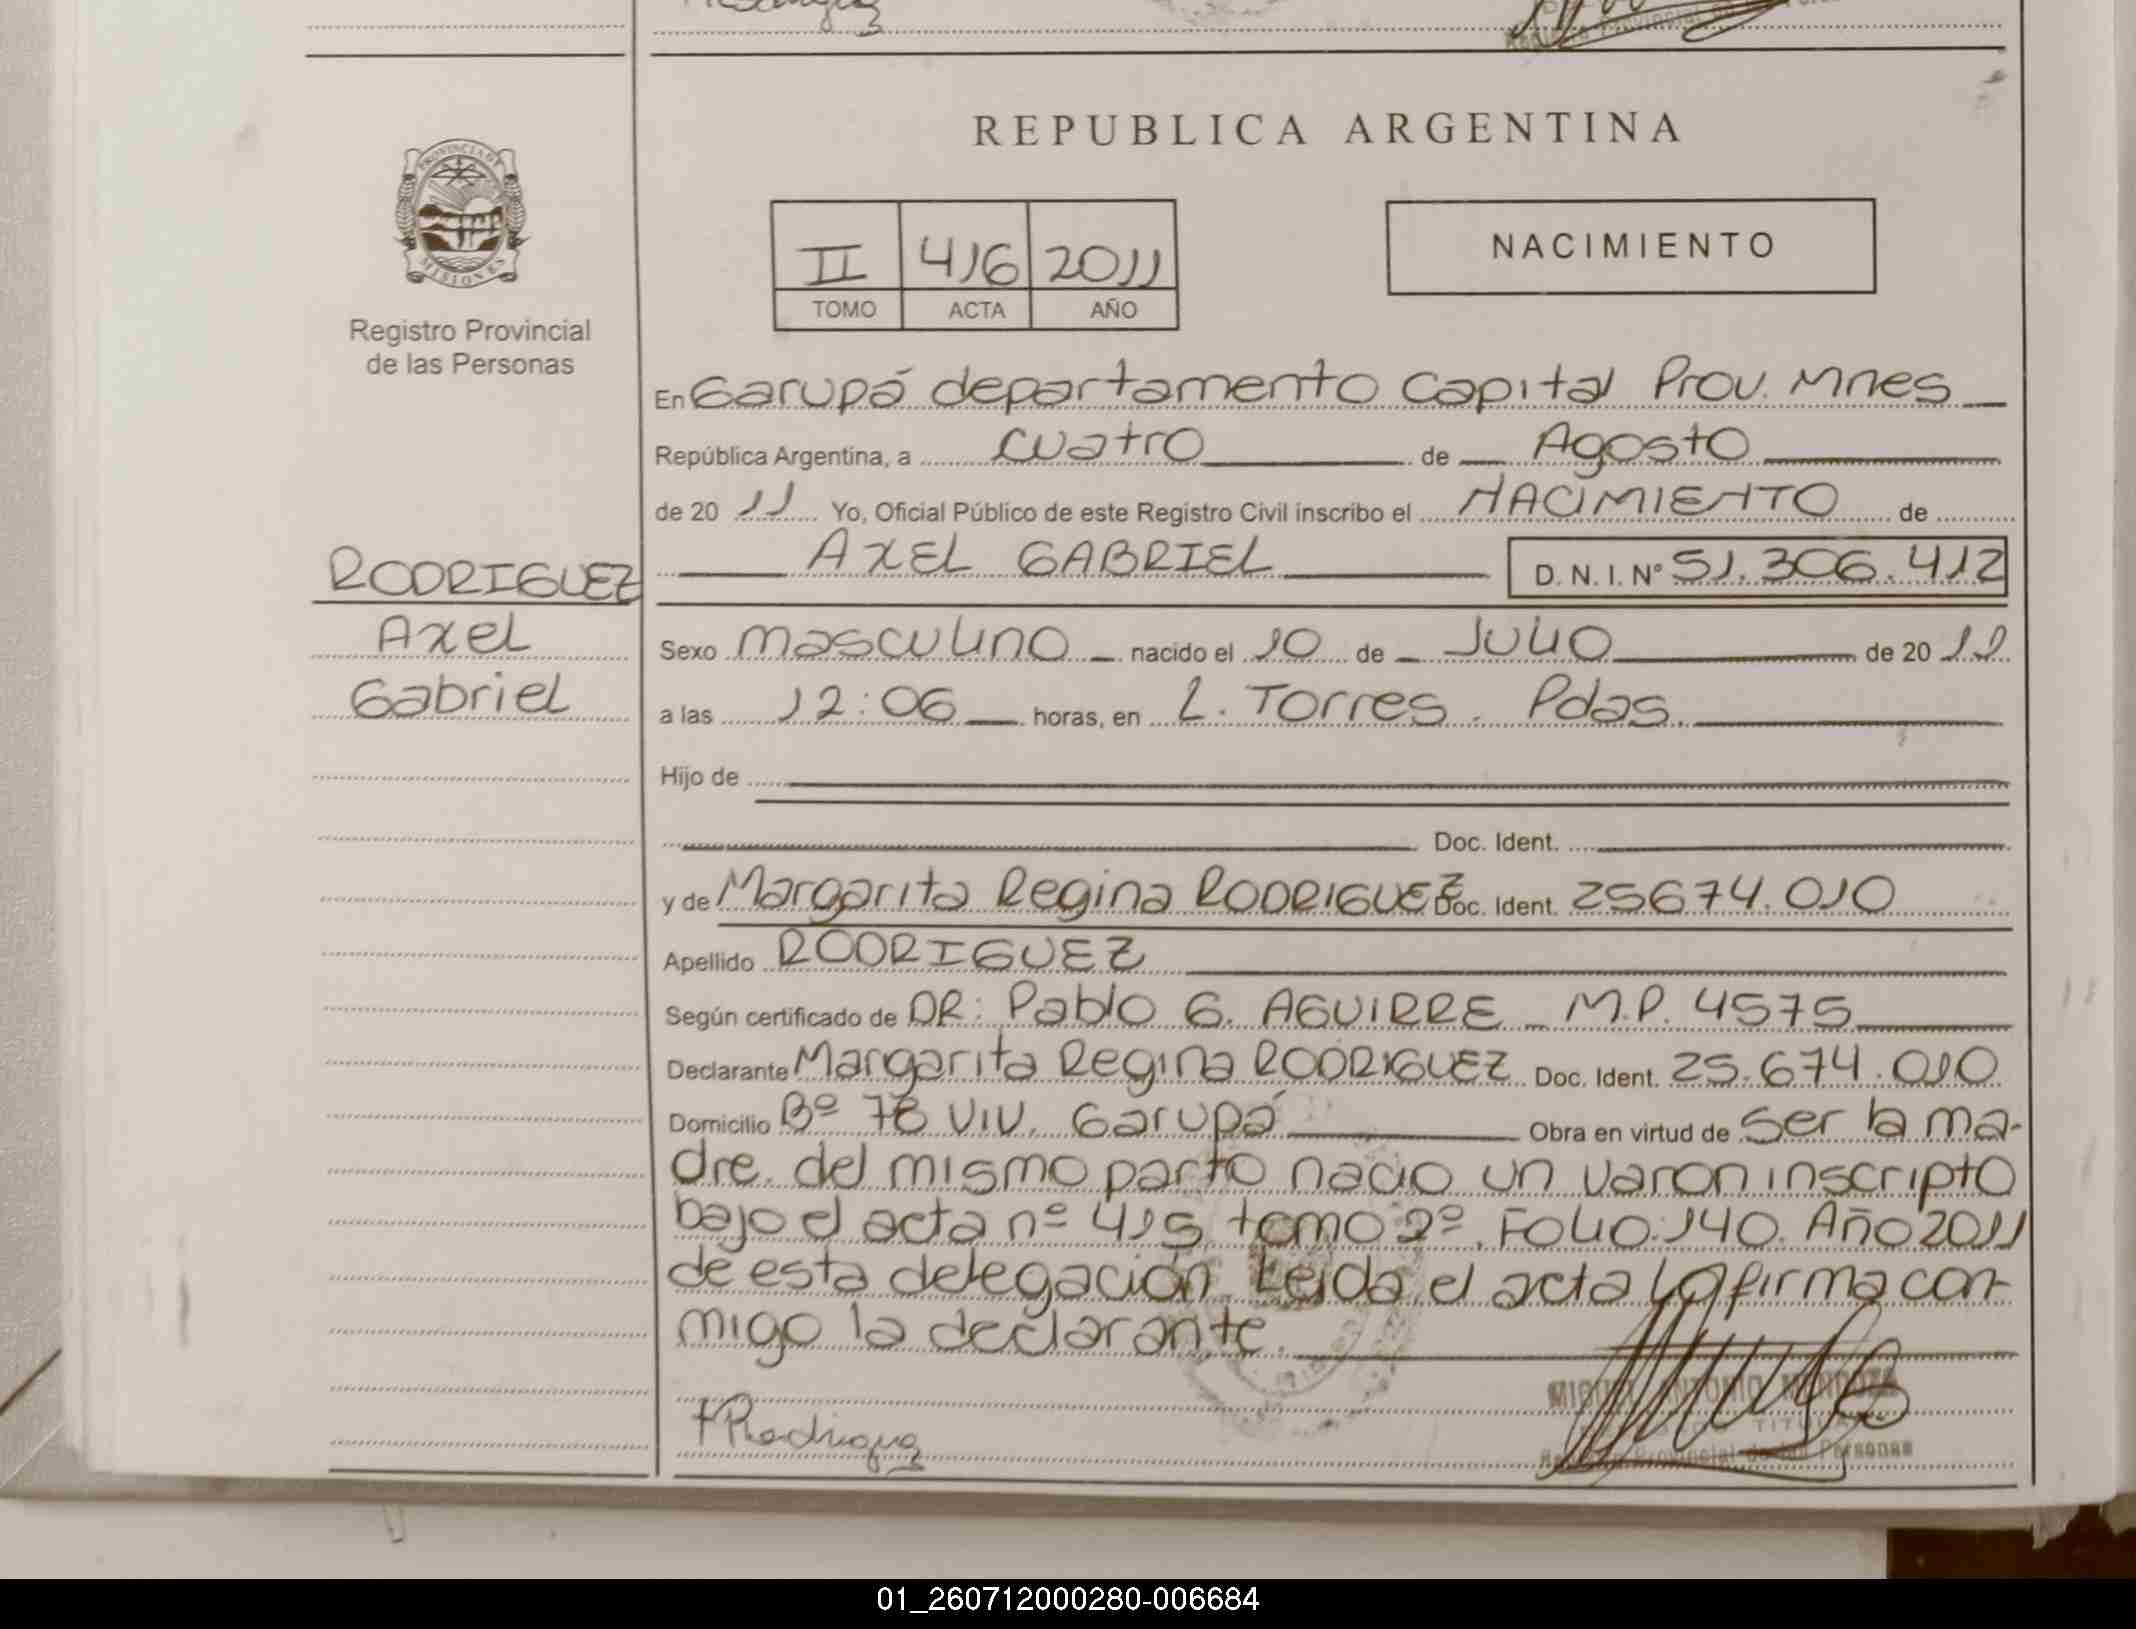 REPUBLICA ARGENTINA
PROVINCIA DE MISIONES
Registro Provincial
de las Personas
II 416 2011
TOMO ACTA AÑO
NACIMIENTO
En Garupá departamento Capital Prov. Mnes
República Argentina, a cuatro de Agosto
de 20 11 Yo, Oficial Público de este Registro Civil inscribo el NACIMIENTO de
AXEL GABRIEL D.N.I. Nº 51.306.412
RODRIGUEZ
Axel
Gabriel
Sexo masculino nacido el 10 de Julio de 20 11
a las 12:06 horas, en L. Torres. Pdas.
Hijo de
Doc. Ident.
y de Margarita Regina RODRIGUEZ Doc. Ident. 25674.010
Apellido RODRIGUEZ
Según certificado de DR: Pablo G. AGUIRRE M.P. 4575
Declarante Margarita Regina RODRIGUEZ Doc. Ident. 25.674.010
Domicilio Bº 78 VIV. Garupá Obra en virtud de ser la ma-
dre. del mismo parto nacio un varon inscripto
bajo el acta nº 415 tomo 2º. Folio.140. Año 2011
de esta delegación. Leida el acta la firma con-
migo la declarante.
Rodriguez
MIGUEL ANTONIO MENDOZA
TITULAR
Registro Provincial de las Personas
01_260712000280-006684